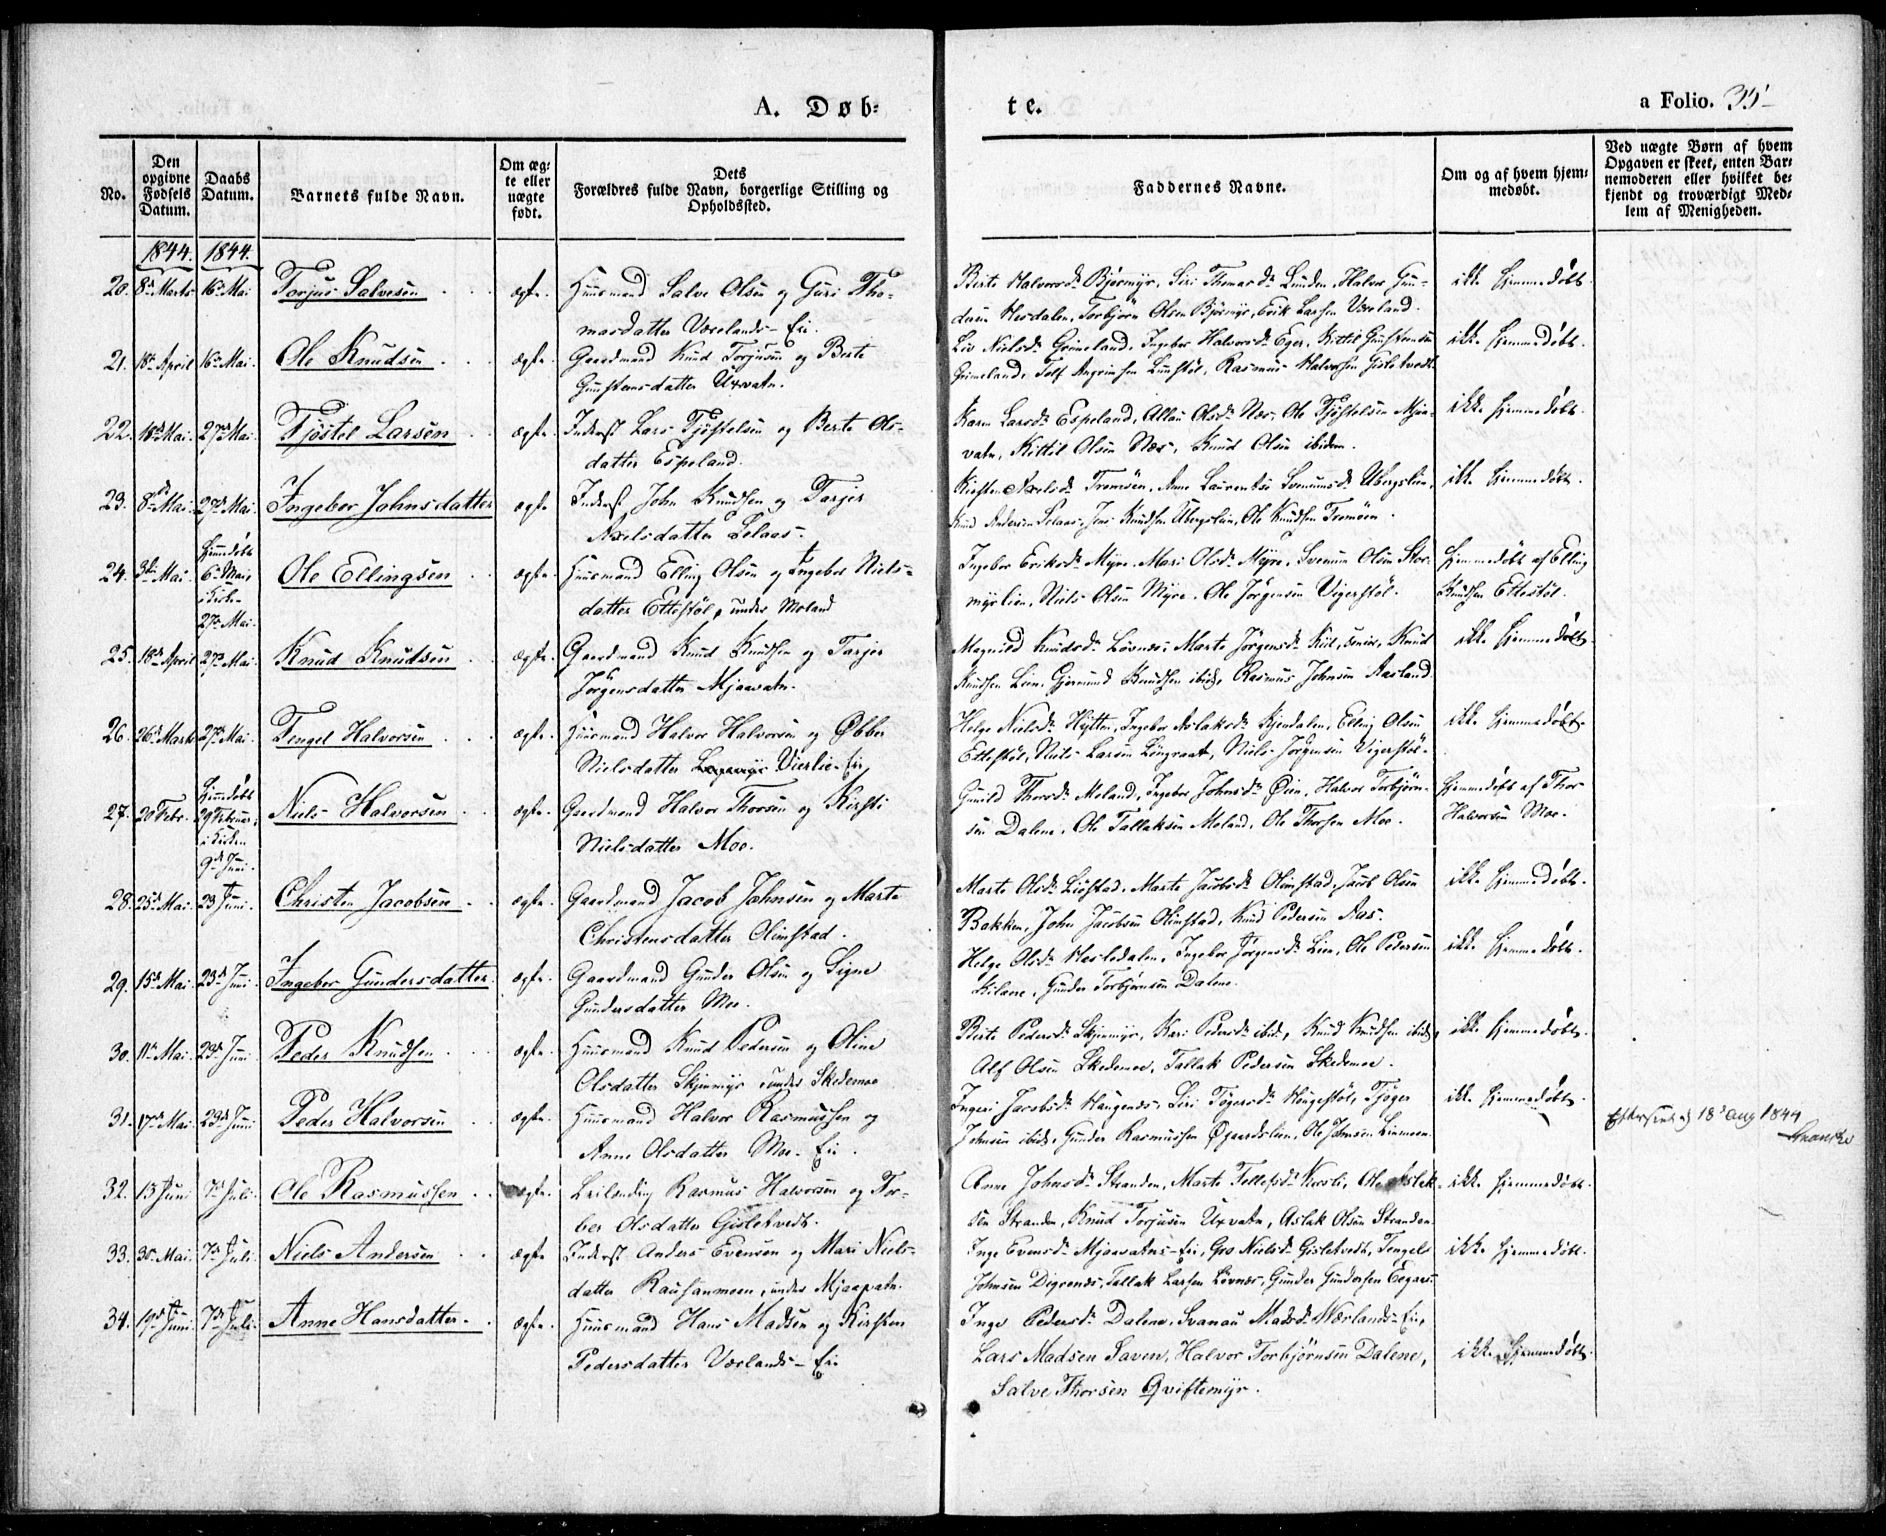 A. Døb-
te.
a Folio. 35
No.
Den opgivne Fødsels Datum.
Daabs Datum.
Barnets fulde Navn.
Om ægte eller uægte født.
Dets Forældres fulde Navn, borgerlige Stilling og Opholdssted.
Faddernes Navne.
Om og af hvem hjemmedøbt.
Ved uægte Børn af hvem Opgaven er skeet, enten Barnemoderen eller hvilket bekjendt og troværdigt Medlem af Menigheden.
1844. 1844.
20. 8de Marts 16de Mai Torjus Salvesen ægte. Huusmand Salve Olsen og Guri Tho-
masdatter Værelands-Eie.
Berte Halvorsdr Bjørmyr, Siri Thomasdr Lunden, Halvor Gun-
dersen Hesdalen, Torbjörn Olsen Björmyr, Erik Larsen Væreland.
ikke hjemmedøbt.
21. 18de April 16de Mai. Ole Knudsen ægte. Gaardmand Knud Torjusen og Berte
Gunstensdatter Uxvatn.
Liv Nielsdr Grimeland, Ingebor Halvorsdr Eger, Kittil Gunstensen
Grimeland, Rasmus Halvorsen Gisletvedt.
ikke hjemmedøbt.
22. 10de Mai. 27de Mai. Tjöstel Larsen ægte. Inderst Lars Tjöstelsen og Berte Ols-
datter Espeland.
Karen Larsdr Espeland, Olsdr Næs, Ole Tjöstelsen Mjaa-
vatn, Kittil Olsen Næs, Knud Olsen ibidem.
ikke hjemmedøbt.
23. 8de Mai. 27de Mai. Ingebor Johnsdatter ægte. Inderst John Knudsen og Tarjer
Axelsdatter Selaas.
Kirsten Axelsdr Tromöen, Anne Laurentse Svenumsdr Ubergslien,
Knud Andersen Selaas, Jens Knudsen Ubergslien, Ole Knudsen Tromöen.
ikke hjemmedøbt.
24. 3die Mai. Hjemmedöbt 6te Mai, i Kirke- 27de Mai. Ole Ellingsen ægte. Huusmand Elling Olsen og Ingebor Niels-
datter Ettestöl, under Moland
Ingebor Eriksdr Myre, Mari Olsdr Myre, Svenum Olsen Stor-
myrlien, Niels Olsen Myre, Ole Jörgensen Vigerstöl.
Hjemmedöbt af Elling
Knudsen Ettestöl.
25. 18de April 27de Mai. Knud Knudsen ægte. Gaardmand Knud Knudsen og Tarjer
Jörgensdatter Mjaavatn.
Magnild Knudsdr Lövnæs, Marte Jörgensdr Kiil, senior, Knud
Knudsen Lien, Gjermund Knudsen ibid, Rasmus Johnsen Aasland.
ikke hjemmedöbt.
26. 26de Marts 27de Mai. Tengel Halvorsen ægte. Huusmand Halvor Halvorsen og Ebber
Nielsdatter Vierlie-Eie.
Helge Nielsdr Hytten, Ingebor Aslaksdr Kjendalen, Elling Olsen
Ettestöl, Niels Larsen Löngraat, Niels Jörgensen Vigerstöl.
ikke hjemmedöbt.
27. 20 Febr. Hjemmedöbt 29 Februar, i Kirken 9de Juni. Niels Halvorsen ægte. Gaardmand Halvor Thorsen og Kirsti
Nielsdatter Moe.
Gunild Thorsdr Moland, Ingebor Johnsdr Öien, Halvor Torbjörn-
sen Dalene, Ole Tallaksen Moland, Ole Thorsen Moe.
Hjemmedöbt af Thor
Halvorsen Moe.
28. 25de Mai 23de Juni. Christen Jacobsen ægte. Gaardmand Jacob Johnsen og Marte
Christensdatter Olimstad.
Marte Olsdr Liöstad, Marte Jacobsdr Olimstad, Jacob Olsen
Bakken, John Jacobsen Olimstad, Knud Pedersen Aas.
ikke hjemmedöbt.
29. 15de Mai 23de Juni. Ingebor Gundersdatter ægte. Gaardmand Gunder Olsen og Signe
Gundersdatter Moe.
Helge Olsdr Hesledalen, Ingebor Jörgensdr Lien, Ole Pedersen
Kilane, Gunder Torbjörnsen Dalene.
ikke hjemmedöbt.
30. 11te Mai. 23de Juni Peder Knudsen ægte. Huusmand Knud Pedersen og Oline
Olsdatter Skjenmyr under Skedemoe
Berte Pedersdr Skjenmyr, Kari Pedersdr ibid, Knud Knudsen ibid,
Alf Olsen Skedemoe, Tallak Pedersen Skedemoe.
ikke hjemmedöbt.
31. 17de Mai. 23de Juni Peder Halvorsen ægte. Huusmand Halvor Rasmussen og
Anne Olsdatter Moe-Eie.
Ingeri Jacobsdr Haugenes, Siri Tögersdr Haugestöl, Tjöger
Johnsen ibid, Gunder Rasmussen Ögaardslien, Ole Johnsen Linmoen.
ikke hjemmedöbt.
Efterseet d 18de Aug 1844
32. 13 Juni 7de Juli. Ole Rasmussen ægte. Leilending Rasmus Halvorsen og Tor-
ber Olsdatter Gisletvedt.
Anne Johnsdr Stranden, Marte Tellefsdr Kveste, Ole Aslak-
sen Stranden, Knud Torjusen Uxvatn, Aslak Olsen Stranden.
ikke hjemmedöbt.
33. 30 Mai. 7de Juli. Niels Andersen ægte. Inderst Anders Evensen og Mari Niels-
datter Rausanmoen, under Mjaavatn.
Inge Evensdr Mjaavatns-Eie, Gro Nielsdr Gisletvedt, Tengels
Johnsen Digernæs, Tallak Larsen Lövnæs, Gunder Gundersen
ikke hjemmedöbt.
34. 19de Juni 7de Juli. Anne Hansdatter. ægte. Huusmand Hans Madsen og Kirsten
Pedersdatter Værlands-Eie
Inge Pedersdr Dalene, Svanau Madsdr Værlands-Eie,
Lars Madsen Saven, Halvor Torbjørnsen Dalene,
Salve Thorsen Qviftemyr.
ikke hjemmedöbt.